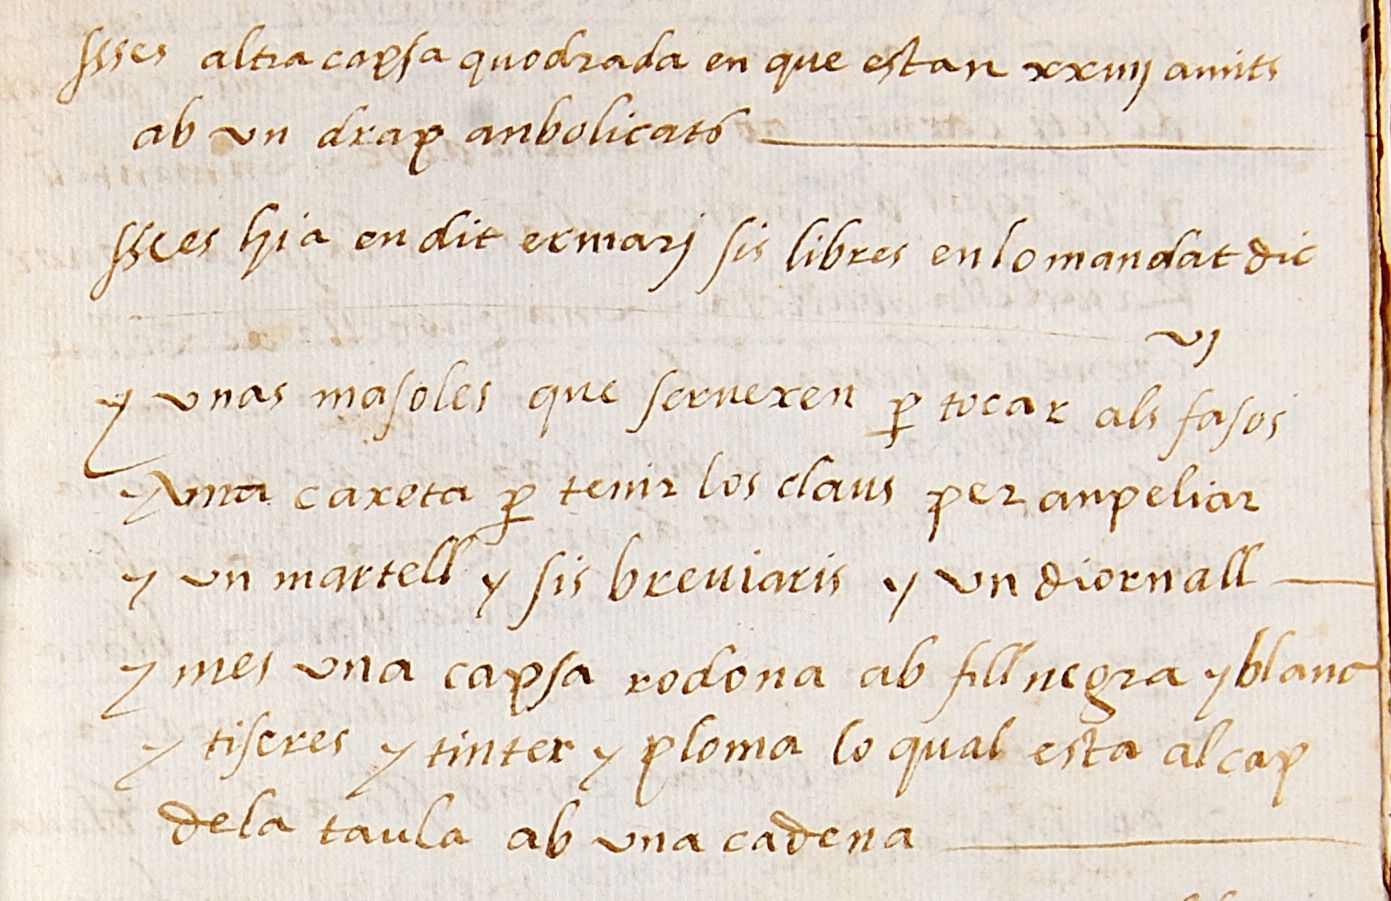 altra capsa quodrada en que estan xxiiij amits
ab vn drap anbolicats
hi a en dit ermarj sis libres en lo mandat dic
vj
y vnas masoles que seruexen p tocar als fasos
y vna caxeta p tenir los claus per anpeliar
y vn martell y sis breuiaris y vn diornall
y mes vna capsa rodona ab fill negra y blanc
y tiseres y tinter y ploma lo qual esta al cap
de la taula ab vna cadena